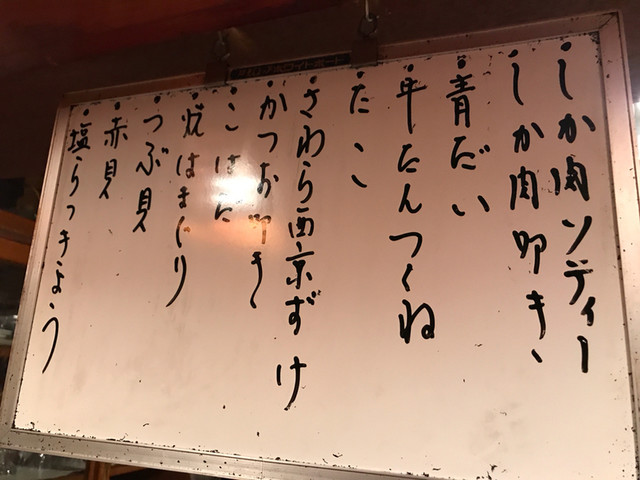 ・しか肉ソティー
・しか肉叩き
・青だい
・牛たんつくね
・たこ
・さわら西京ずけ
・かつお叩き
・こはだ
・焼はまぐり
・つぶ貝
・赤貝
・塩らっきょう